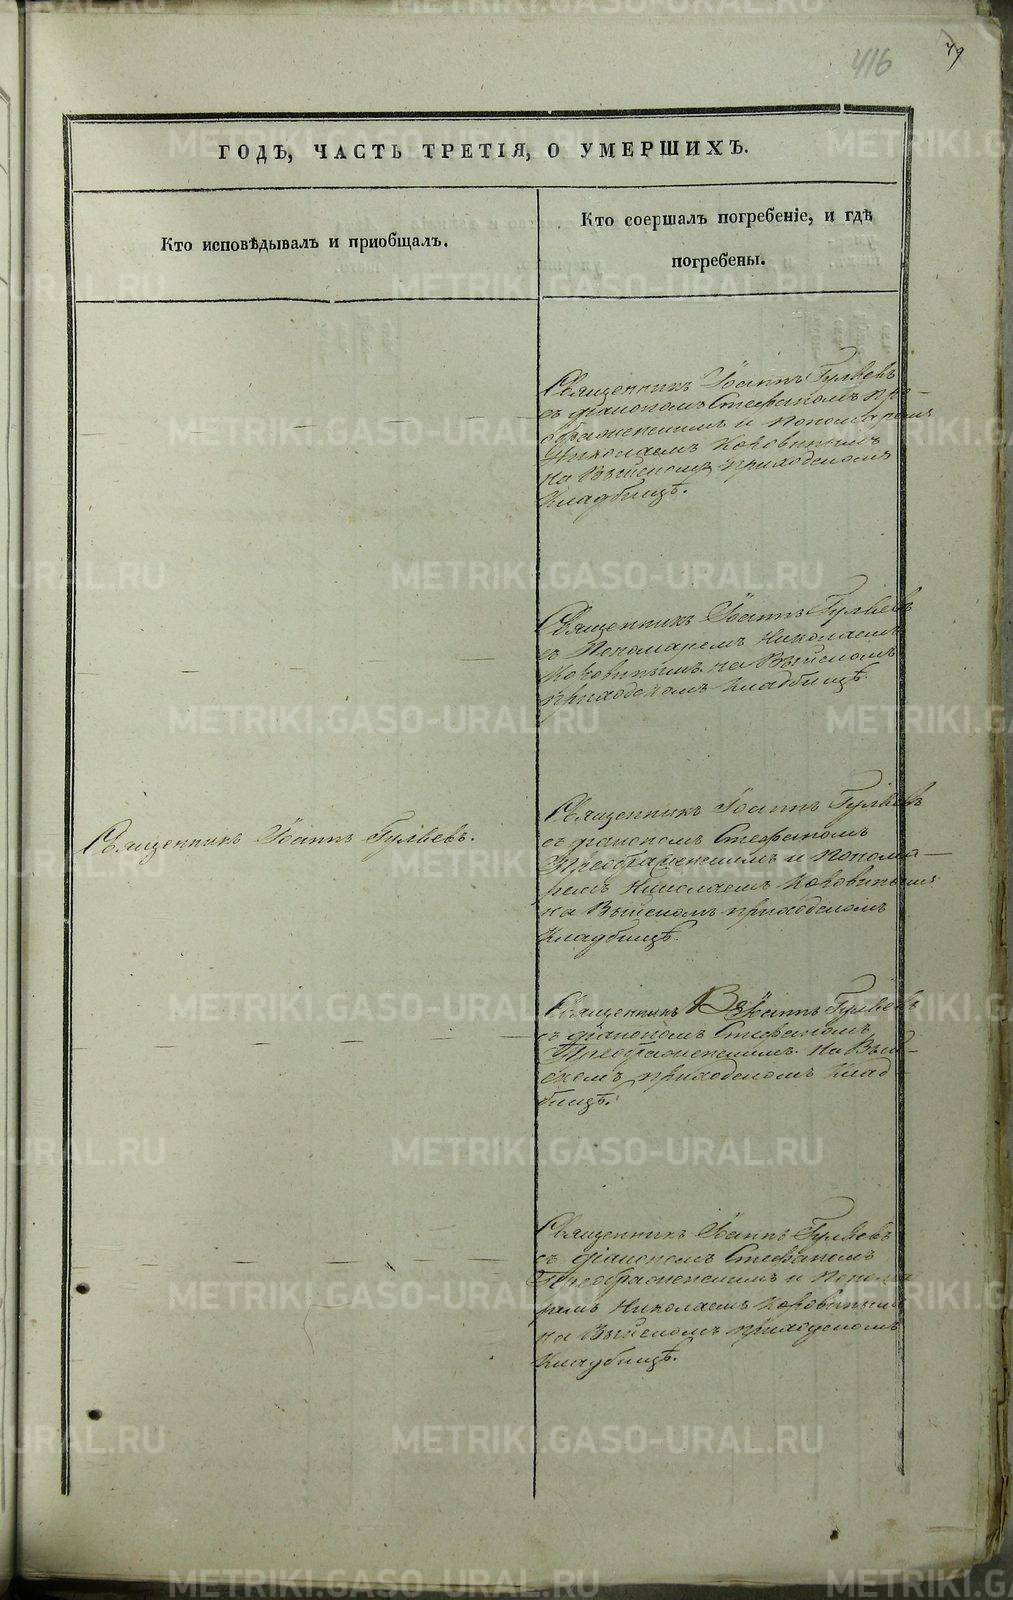 416
79
ГОДЪ, ЧАСТЬ ТРЕТІЯ, О УМЕРШИХЪ.
Кто исповѣдывалъ и приобщалъ.
Кто соершалъ погребеніе, и гдѣ
погребены.
Священникъ Іоаннъ Гуляевъ
съ діакономъ Стефаномъ Пре-
ображенскимъ и пономаремъ
Николаемъ Коровинымъ
на Выйскомъ приходскомъ
кладбищѣ.
Священникъ Іоаннъ Гуляевъ
съ Пономаремъ Николаемъ
Коровинымъ на Выйскомъ
приходскомъ кладбищѣ.
Священникъ Іоаннъ Гуляевъ.
Священникъ Іоаннъ Гуляевъ
съ діакономъ Стефаномъ
Преображенскимъ и понома-
ремъ Николаемъ Коровинымъ
на Выйскомъ приходскомъ
кладбищѣ.
Священникъ Іоаннъ Гуляевъ
съ діакономъ Стефаномъ
Преображенскимъ на Вый-
скомъ приходскомъ клад-
бищѣ.
Священникъ Іоаннъ Гуляевъ
съ діакономъ Стефаномъ
Преображенскимъ и понома
ремъ Николаемъ Коровинымъ
на Выйскомъ приходскомъ
кладбищѣ.
METRIKI.GASO-URAL.RU